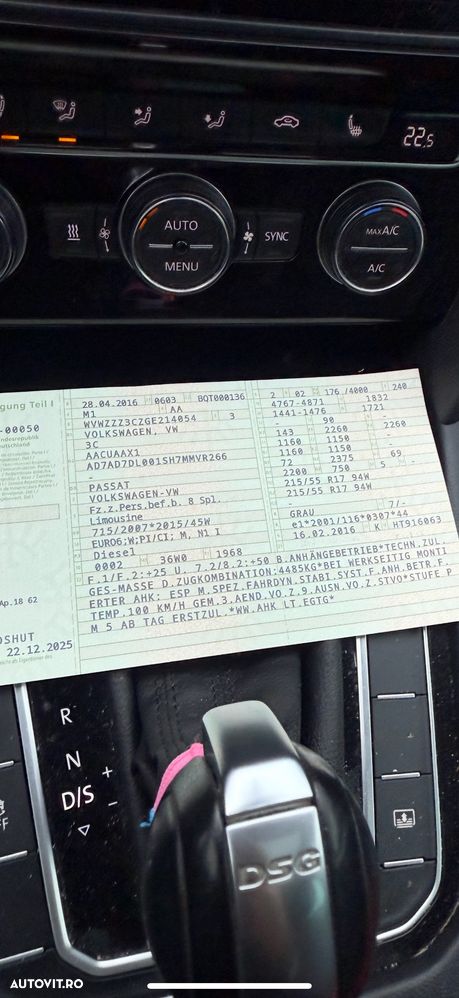 22.5
AUTO
MENU
SYNC
MAX A/C
A/C
gung Teil I
-00050
28.04.2016 0603 BQT000136
M1 AA
WVWZZZ3CZGE214054 3
VOLKSWAGEN, VW
3C
AACUAAX1
AD7AD7DL001SH7MMVR266
-
PASSAT
VOLKSWAGEN-VW
Fz.z.Pers.bef.b. 8 Spl.
Limousine
715/2007*2015/45W
EURO6;W;PI/CI; M, N1 I
Diesel
0002 36W0 1968
2 02 176 /4000 240
4767-4871 1832
1441-1476 1721
- 90
143 2260 2260
1160 1150 -
1160 1150 -
72 2375 69
2200 750 5
215/55 R17 94W
215/55 R17 94W
-
GRAU 7/-
e1*2001/116*0307*44
16.02.2016 K HT916063
F.1/F.2:+25 U. 7.2/8.2:+50 B.ANHÄNGEBETRIEB*TECHN.ZUL.
GES-MASSE D.ZUGKOMBINATION:4485KG*BEI WERKSEITIG MONTI
ERTER AHK: ESP M.SPEZ.FAHRDYN.STABI.SYST.F.ANH.BETR.F.
TEMP.100 KM/H GEM.3.AEND.VO.Z.9.AUSN.VO.Z.STVO*STUFE P
M 5 AB TAG ERSTZUL.*WW.AHK LT.EGTG*
Ap.18 62
DSHUT
22.12.2025
R
N
D/S
+
-
FF
DSG
AUTOVIT.RO